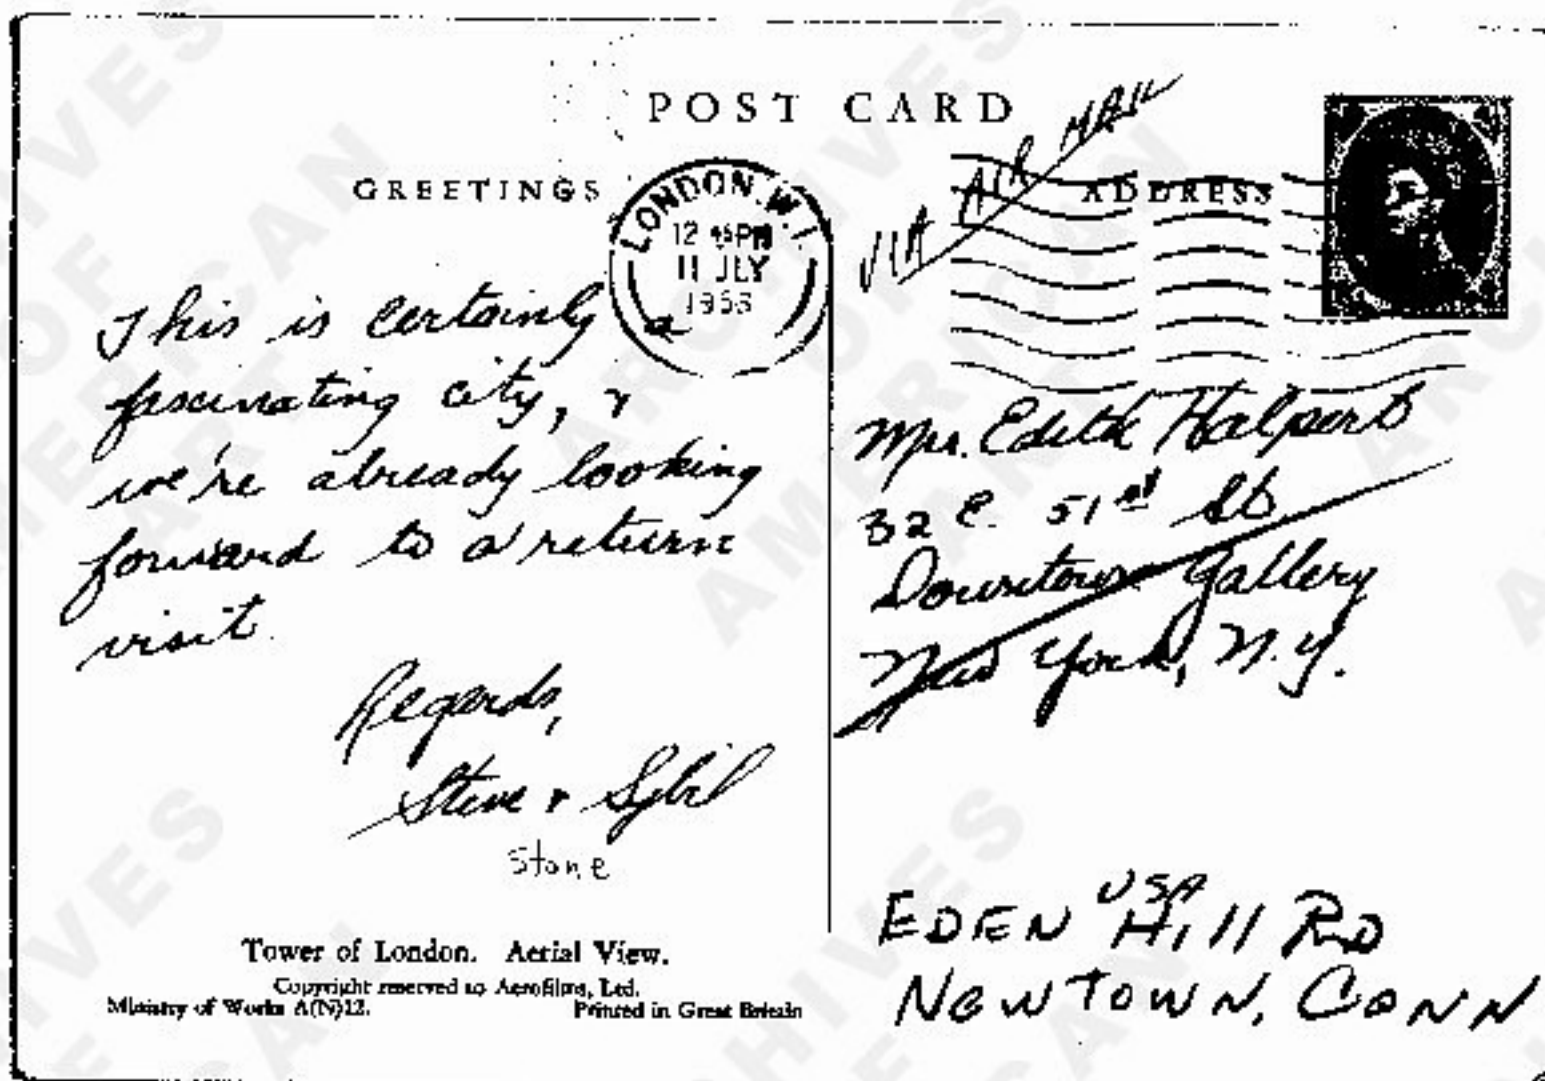 POST CARD
GREETINGS
ADDRESS
VIA AIR MAIL
LONDON. W.1
12 45 PM
11 JLY
This is certainly a
fascinating city, &
we're already looking
forward to a return
visit.
Regards,
Steve & Sybil
Stone
Tower of London. Aerial View.
Copyright reserved to Aerofilms, Ltd.
Ministry of Works A(N)12.
Printed in Great Britain
Mrs. Edith Halpert
32 E. 51st St
Downtown Gallery
New York, N.Y.
USA
EDEN HILL RD
NEWTOWN, CONN
ARCHIVES OF AMERICAN ART